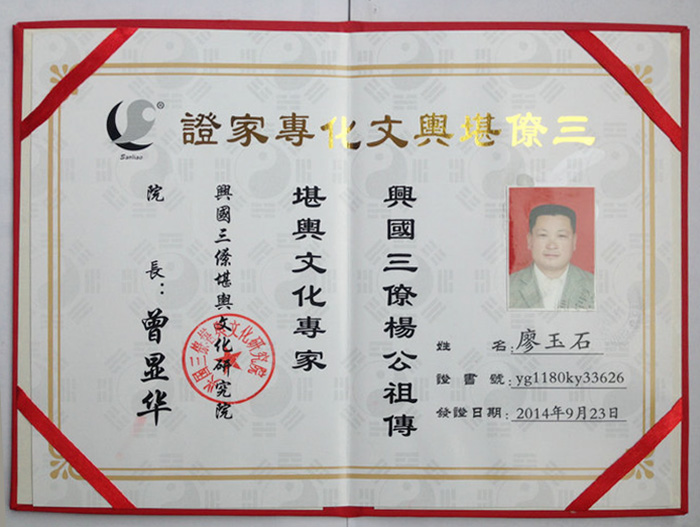 三僚堪輿文化專家證
興國三僚楊公祖傳
堪輿文化專家
興國三僚堪輿文化研究院
院 長：曾显华
姓 名：廖玉石
證 書 號：yg1180ky33626
發證日期：2014年9月23日
Sanliao
®
兴国三僚堪舆文化研究院